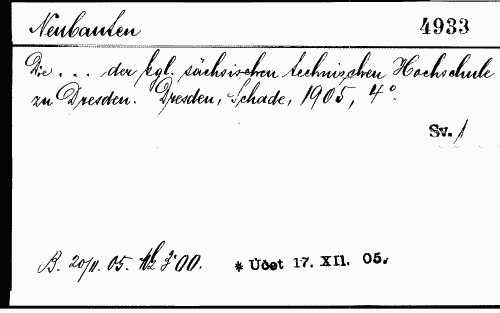 Neubauten 4933
Die . . . der kgl. sächsischen technischen Hochschule
zu Dresden. Dresden, Schade, 1905, 4°.
Sv. 1
B. 20/11. 05. 3·00. * Účet 17. XII. 05.